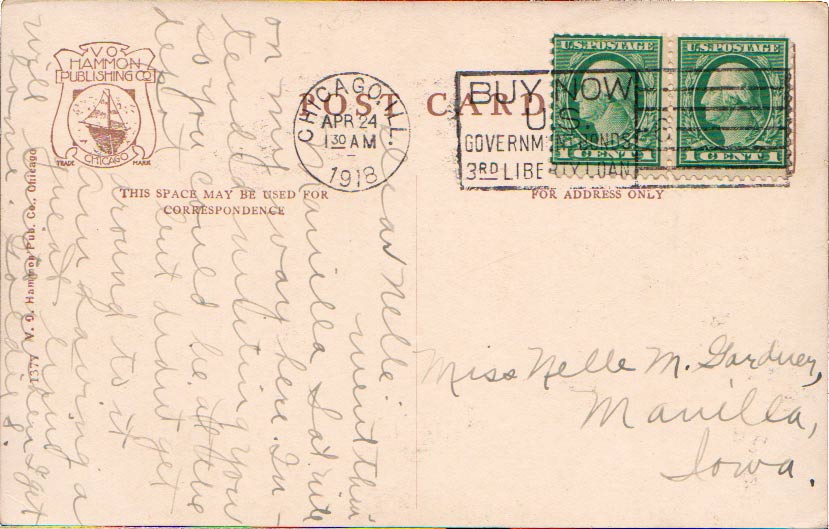 V O
HAMMON
PUBLISHING CO
TRADE MARK
CHICAGO
POST CARD
CHICAGO, ILL.
APR 24
1 30 AM
1918
BUY NOW
U.S.
GOVERNMENT BONDS
3RD LIBERTY LOAN
U.S. POSTAGE
1 CENT 1
U.S. POSTAGE
1 CENT 1
THIS SPACE MAY BE USED FOR
CORRESPONDENCE
FOR ADDRESS ONLY
137V V. O. Hammon Pub. Co., Chicago
Dear Nelle:
went thru
Manilla Sat nite
on my way here. In-
tended writing you
so you could be at the
depot but didn't get
around to it
Am having a
great time
will
come
Miss Nelle M. Gardner,
Manilla,
Iowa.